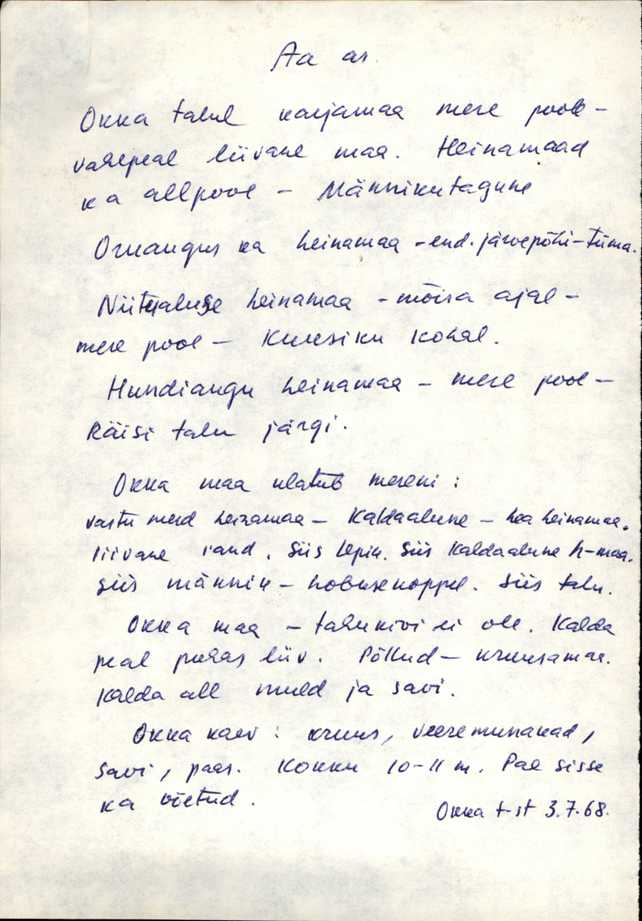 Aa as.
Okka talul karjamaa mere pool –
vahepeal liivane maa. Heinamaad
ka allpool – Männikutagune
Oruangus ka heinamaa – end. järvepõhi – tüma.
Niitejaluse heinamaa – mõisa ajal –
mere pool – Kuusiku kohal.
Hundiangu heinamaa – mere pool –
Räisi talu järgi.
Okka maa ulatub mereni:
vastu merd heinamaa – Kaldaalune – hea heinamaa.
liivane rand. Siis lepik. Siis Kaldaalune h-maa.
Siis männik – hobusekoppel. Siis talu.
Okka maa – talu kivi ei ole. Kalda
peal puhas liiv. Põllud – kruusamaa.
Kalda all muld ja savi.
Okka kaev: kruus, veeremunakad,
savi, paas. Kokku 10–11 m. Pae sisse
ka võetud.
Okka t-st 3.7.68.